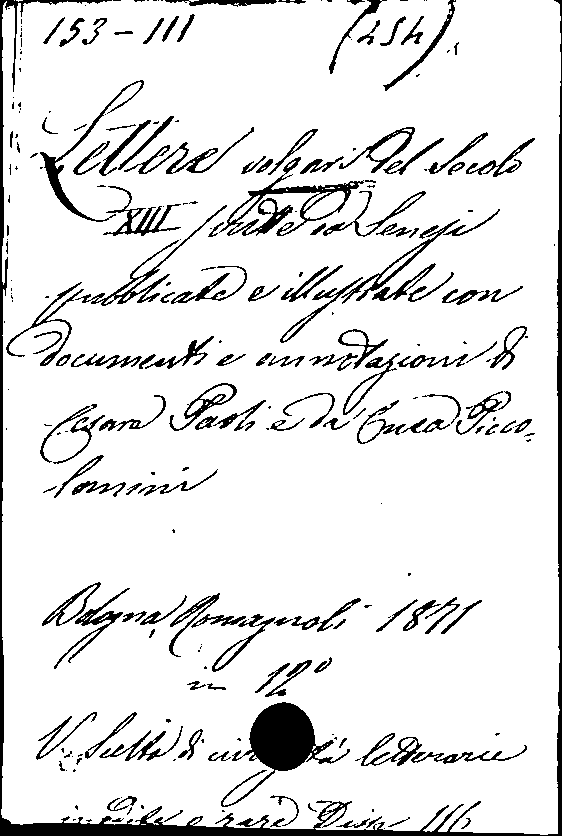 153-111 (254)
Lettere volgari del Secolo
XIII scritte da Senesi
pubblicate e illustrate con
documenti e annotazioni di
Cesare Paoli e da Enea Picco-
lomini
Bologna, Romagnoli 1871
in 12º
V. Scelta di curiosità letterarie
inedite e rare Disp. 116